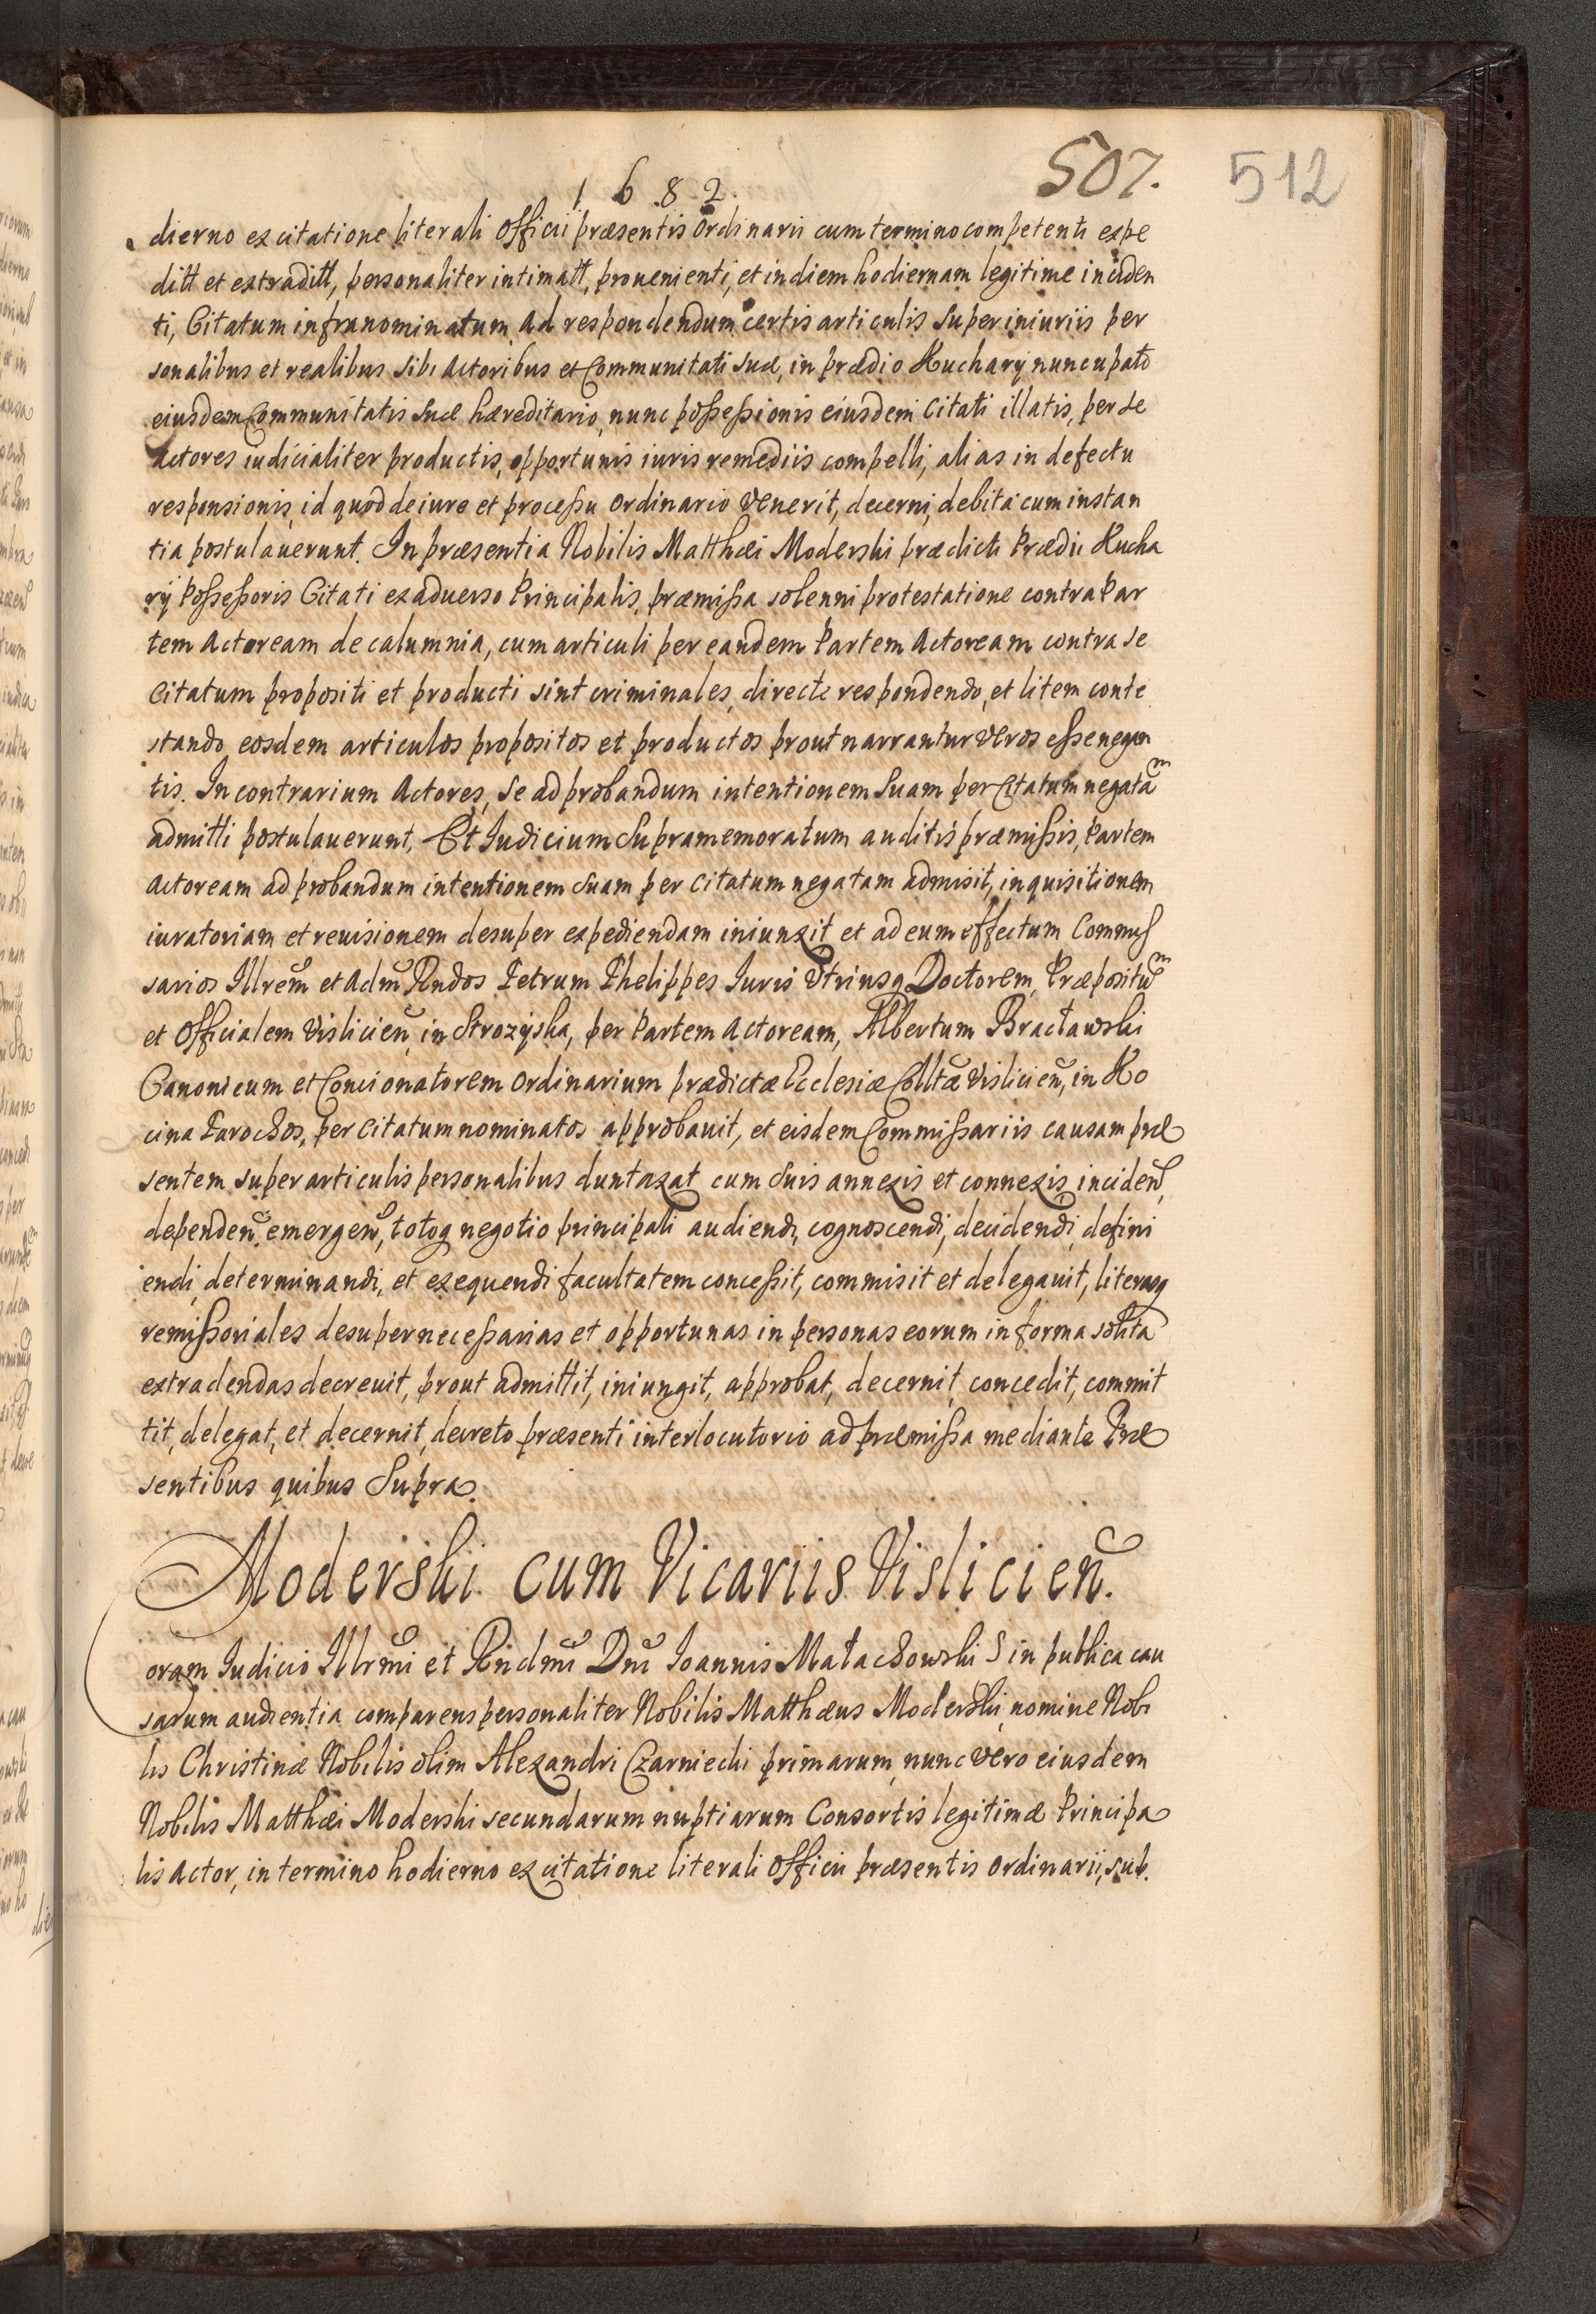 507. 512
1682.
dierno ex citatione literali Officii præsentis Ordinarii cum termino competenti expe
ditt et extraditt, personaliter intimatt, prouenienti, et in diem hodiernam legitime inciden
ti, Citatum infranominatum Ad respondendum certis articulis super iniuriis per
sonalibus et realibus sibi Actoribus et Communitati suæ, in prædio Kuchary nuncupato
eiusdem Communitatis suæ hæreditario, nunc possessionis eiusdem Citati illatis, per se
Actores iudicialiter productis, opportunis iuris remediis compelli, alias in defectu
responsionis, id quod de iure et processu ordinario venerit, decerni, debita cum instan
tia postulauerunt. In præsentia Nobilis Matthæi Moderski prædicti Prædii Kucha
ry Possessoris Citati ex aduerso Principalis, præmissa solenni protestatione contra Par
tem Actoream de calumnia, cum articuli per eandem Partem Actoream contra se
Citatum propositi et producti sint criminales, directe respondendo, et litem conte
stando, eosdem articulos propositos et productos prout narrantur veros esse negan
tis. In contrarium Actores, se ad probandum intentionem suam per Citatum negatam
admitti postulauerunt. Et Iudicium supramemoratum auditis præmissis, Partem
Actoream ad probandum intentionem suam per Citatum negatam admisit, inquisitionem
iuratoriam et reuisionem desuper expediendam iniunxit et ad eum effectum Commis
sarios Illrem̃ et Adm̃ Rndos Petrum Phelippes Iuris Utriusq Doctorem, Præpositum
et Officialem Vislicien̄, in Strozyska, per Partem Actoream, Albertum Bracławski
Canonicum et Concionatorem ordinarium prædictæ Ecclesiæ Colltæ Vislicien̄, in Ko
cina Parochos, per Citatum nominatos approbauit, et eisdem Commissariis causam præ
sentem super articulis personalibus duntaxat cum suis annexis et connexis, inciden̄,
dependen̄, emergen̄, totoq negotio principali audiendi, cognoscendi, decidendi, defini
endi, determinandi, et exequendi facultatem concessit, commisit et delegauit, literasq
remissoriales desuper necessarias et opportunas in personas eorum in forma solita
extradendas decreuit, prout admittit, iniungit, approbat, decernit, concedit, commit
tit, delegat, et decernit, decreto præsenti interlocutorio ad præmissa mediante Præ
sentibus quibus Supra.
Moderski cum Vicariis Vislicien̄.
Coram Iudicio Illrmi et Rndmi Dni Ioannis Małachowski S in publica cau
sarum audientia comparens personaliter Nobilis Matthæus Moderski, nomine Nobi
lis Christinæ Nobilis olim Alexandri Czarniecki primarum, nunc vero eiusdem
Nobilis Matthæi Moderski secundarum nuptiarum Consortis legitimæ Principa
lis Actor, in termino hodierno ex citatione literali Officii præsentis Ordinarii, sub.